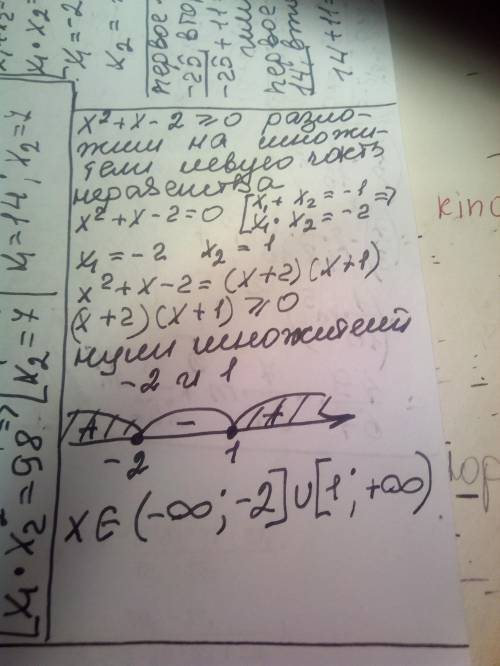 x² + x - 2 ⩾ 0 разло-
жим на множи-
тели левую часть
неравенства
x² + x - 2 = 0 [x₁ + x₂ = -1
x₁ · x₂ = -2 =>
x₁ = -2 x₂ = 1
x² + x - 2 = (x+2)(x+1)
(x+2)(x+1) ⩾ 0
нули множителей
-2 и 1
+ - +
-2 1
x ∈ (-∞; -2] ∪ [1; +∞)
[x₁ · x₂ = 98 => [x₂ = 7 | x₁ = 14; x₂ = 7
x₁ · x₂
x₁ = -2
x₂ =
первое
-25 вто
-25 + 11 =
первое
14, вт
14 + 11 =